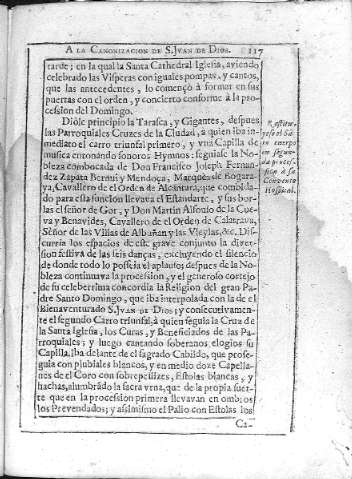 A LA CANONIZACION DE S. JVAN DE DIOS. 117
tarde; en la qual la Santa Cathedral Iglesia, aviendo
celebrado las Visperas con iguales pompas, y cantos,
que las antecedentes, lo començò à formar en sus
puertas con el orden, y concierto conforme à la pro-
cession del Domingo.
Diòle principio la Tarasca, y Gigantes, despues
las Parroquiales Cruzes de la Ciudad, à quien iba in-
mediato el carro triunfal primero, y vna Capilla de
musica entonando sonoros Hymnos: seguiase la No-
bleza combocada de Don Francisco Joseph Fernan-
dez Zapata Berrni y Mendoça, Marquès de Bogara-
ya, Cavallero de el Orden de Alcantara, que combida-
do para esta funcion llevava el Estandarte, y sus bor-
las el señor de Gor, y Don Martin Alfonso de la Cue-
va y Benavides, Cavallero de el Orden de Calatrava,
Señor de las Villas de Albuñan y las Vleylas, &c. Dis-
curria los espacios de este grave conjunto la diver-
sion festiva de las seis danças, excluyendo el silencio
de donde todo lo posseia el aplauso; despues de la No-
bleza continuava la procession, y el generoso cortejo
de su celeberrima concordia la Religion del gran Pa-
dre Santo Domingo, que iba interpolada con la de el
Bienaventurado S. JVAN DE DIOS; y consecutivamen-
te el segundo Carro triunfal, à quien seguia la Cruz de
la Santa Iglesia, los Curas, y Beneficiados de las Pa-
rroquiales; y luego cantando soberanos elogios su
Capilla, iba delante de el sagrado Cabildo, que prose-
guia con plubiales blancos, y en medio doze Capella-
nes de el Coro con sobrepellizes, Estolas blancas, y
hachas, alumbrãdo la sacra vrna, que de la propia suer-
te que en la procession primera llevavan en ombros
los Prevendados; y asimismo el Palio con Estolas los
Ca-
Restitu-
yese el Sã
to cuerpo
en segun-
da proces-
sion à su
Convento
Hospital.